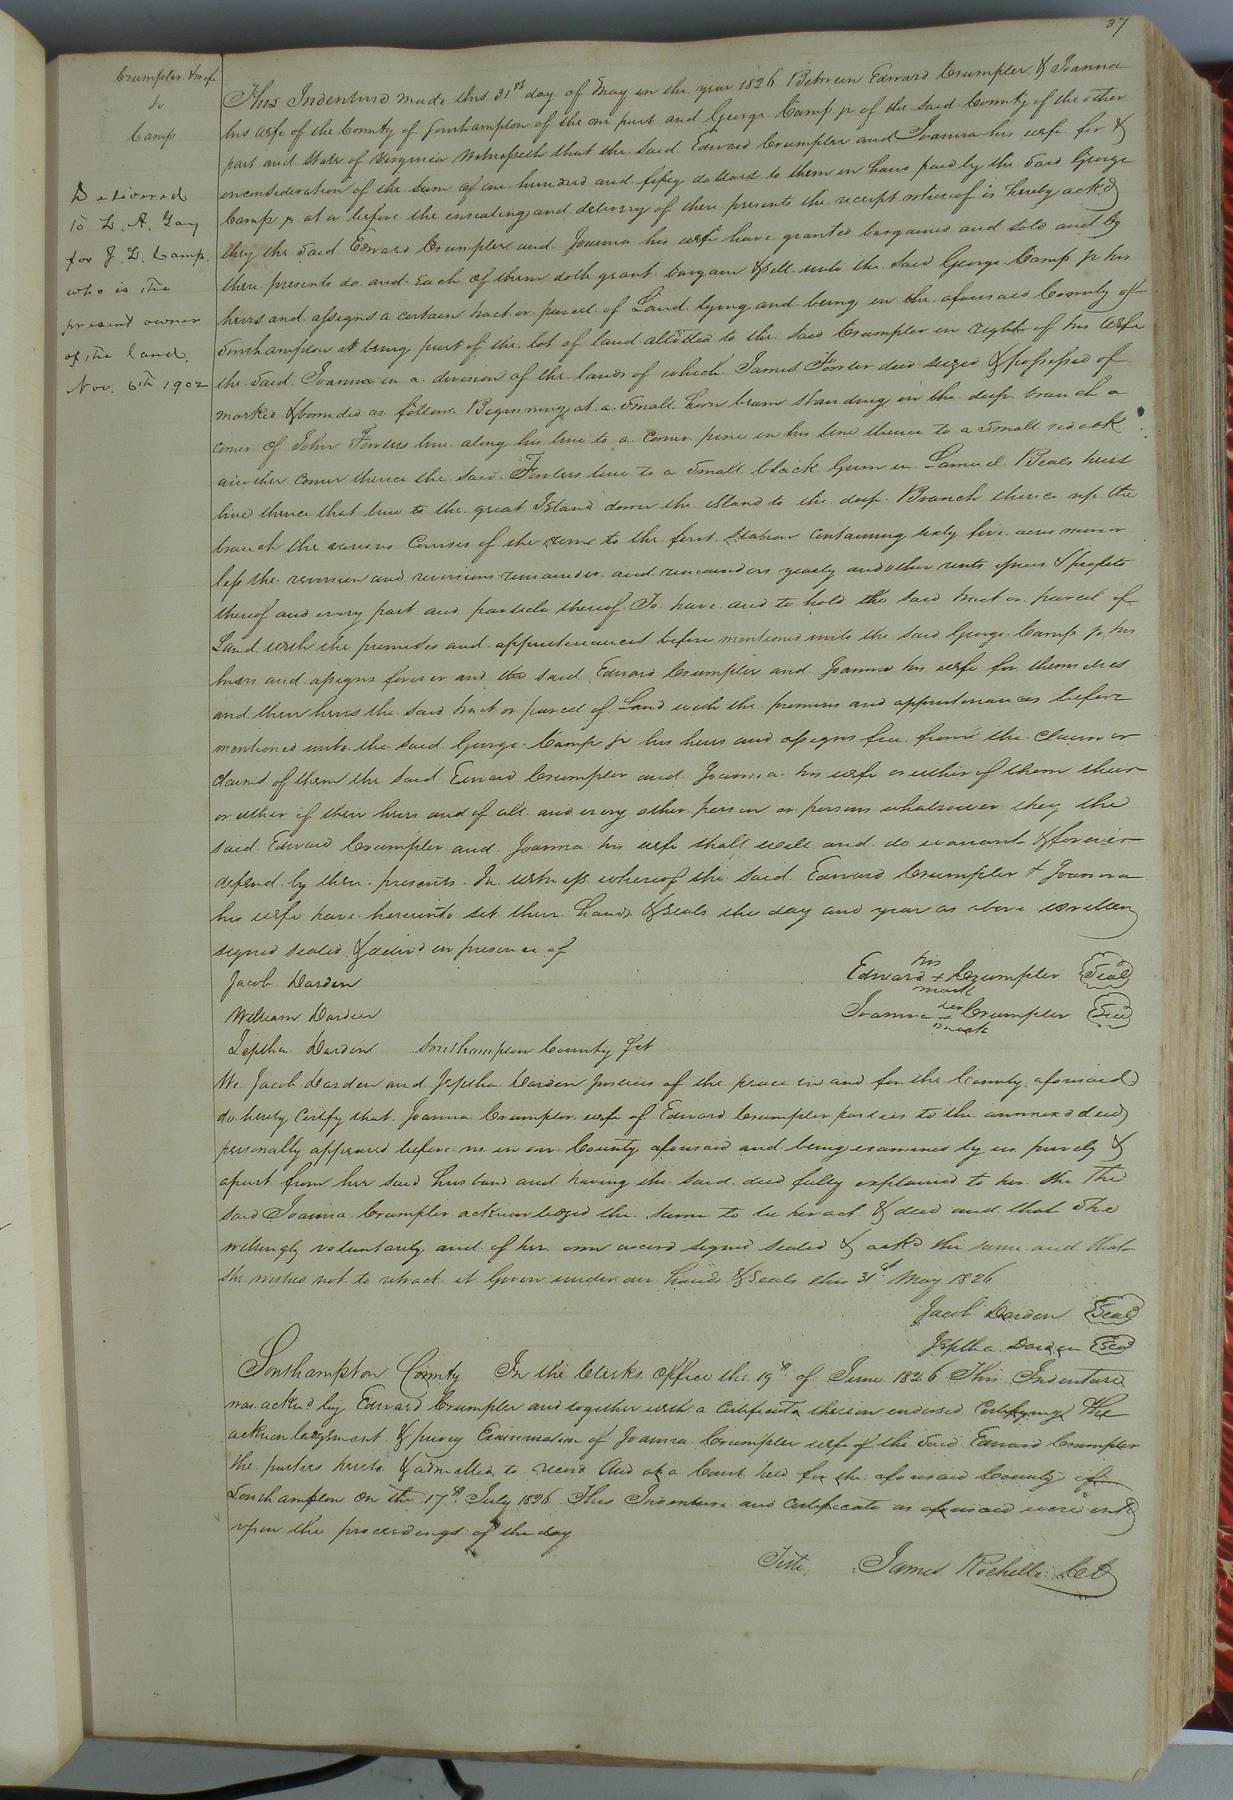 37
Crumpler & wife
to
Camp
Delivered
to L. A. Gay
for J. L. Camp.
who is the
present owner
of the land.
Nov. 6th 1902
This Indenture made this 31st day of May in the year 1826 Between Edward Crumpler & Joanna
his wife of the County of Southampton of the one part and George Camp jr of the said County of the other
part and State of Virginia Witnesseth that the said Edward Crumpler and Joanna his wife for &
inconsideration of the sum of one hundred and fifty dollars to them in hand paid by the said George
Camp jr at or before the ensealing and delivery of these presents the receipt whereof is hereby ackd
they the said Edward Crumpler and Joanna his wife have granted bargained and sold and by
these presents do and Each of them doth grant bargain & sell unto the said George Camp jr his
heirs and assigns a certain tract or parcel of Land lying and being in the aforesaid County of
Southampton it being part of the lot of land allotted to the said Crumpler in right of his wife
the said Joanna in a division of the lands of which James Fowler died seized & possessed of
marked & bounded as follows Beginning at a small horn beam standing in the deep branch a
corner of John Fowlers line along his line to a corner pine in his line thence to a small red oak
another corner thence the said Fowlers line to a small black Gum in Samuel Beals heirs
line thence that line to the great Island down the island to the deep Branch thence up the
branch the various Courses of the same to the first Station Containing sixty five acres more or
less the reversion and reversions remainder and remainders yearly and other rents issues & profits
thereof and every part and particle thereof To have and to hold the said tract or parcel of
Land with the premises and appurtenances before mentioned unto the said George Camp jr his
heirs and assigns forever and the said Edward Crumpler and Joanna his wife for themselves
and their heirs the said tract or parcel of Land with the premises and appurtenances before
mentioned unto the said George Camp jr his heirs and assigns free from the claim or
claims of them the said Edward Crumpler and Joanna his wife or either of them their
or either of their heirs and of all and every other person or persons whatsoever they the
said Edward Crumpler and Joanna his wife shall will and do warrant & forever
defend by these presents In witness whereof the said Edward Crumpler & Joanna
his wife have hereunto set their hands & seals the day and year as above written
signed sealed & delivd in presence of
Jacob Darden
Edward his + mark Crumpler Seal
William Darden
Joanna her + mark Crumpler Seal
Jeptha Darden Southampton County Sct
We Jacob Darden and Jeptha Darden Justices of the peace in and for the County aforesaid
do hereby certify that Joanna Crumpler wife of Edward Crumpler parties to the annexed deed
personally appeared before us in our County aforesaid and being examined by us privily &
apart from her said husband and having the said deed fully explained to her she the
said Joanna Crumpler acknowledged the same to be her act & deed and that she
willingly voluntarily and of her own accord signed sealed & ackd the same and that
she wishes not to retract it Given under our hands & seals this 31st May 1826
Jacob Darden Seal
Jeptha Darden Seal
Southampton County In the Clerks Office the 19th of June 1826 This Indenture
was ackd by Edward Crumpler and together with a Certificate thereon endorsed Certifying the
acknowledgment & privy Examination of Joanna Crumpler wife of the said Edward Crumpler
the parties hereto & admitted to record And at a Court held for the aforesaid County of
Southampton on the 17th July 1826 This Indenture and Certificate as aforesaid were entd
upon the proceedings of the day
Teste. James Rochelle CC